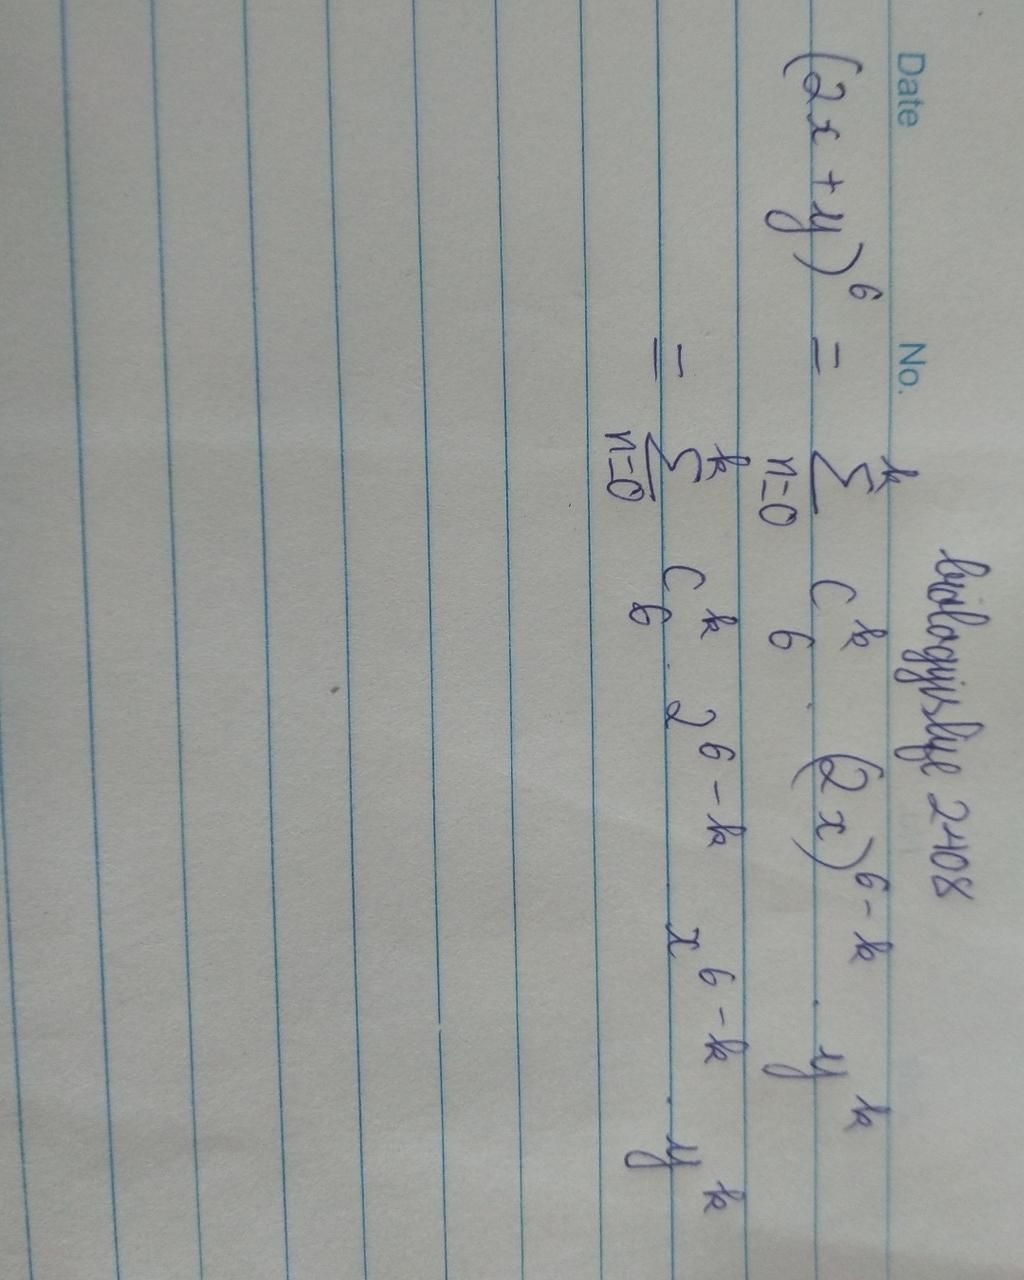 Date No.
biologyislife 2408
(2x + y)⁶ = ∑ₙ₌₀ᵏ C₆ᵏ . (2x)⁶⁻ᵏ . yᵏ
= ∑ₙ₌₀ᵏ C₆ᵏ . 2⁶⁻ᵏ x⁶⁻ᵏ . yᵏ